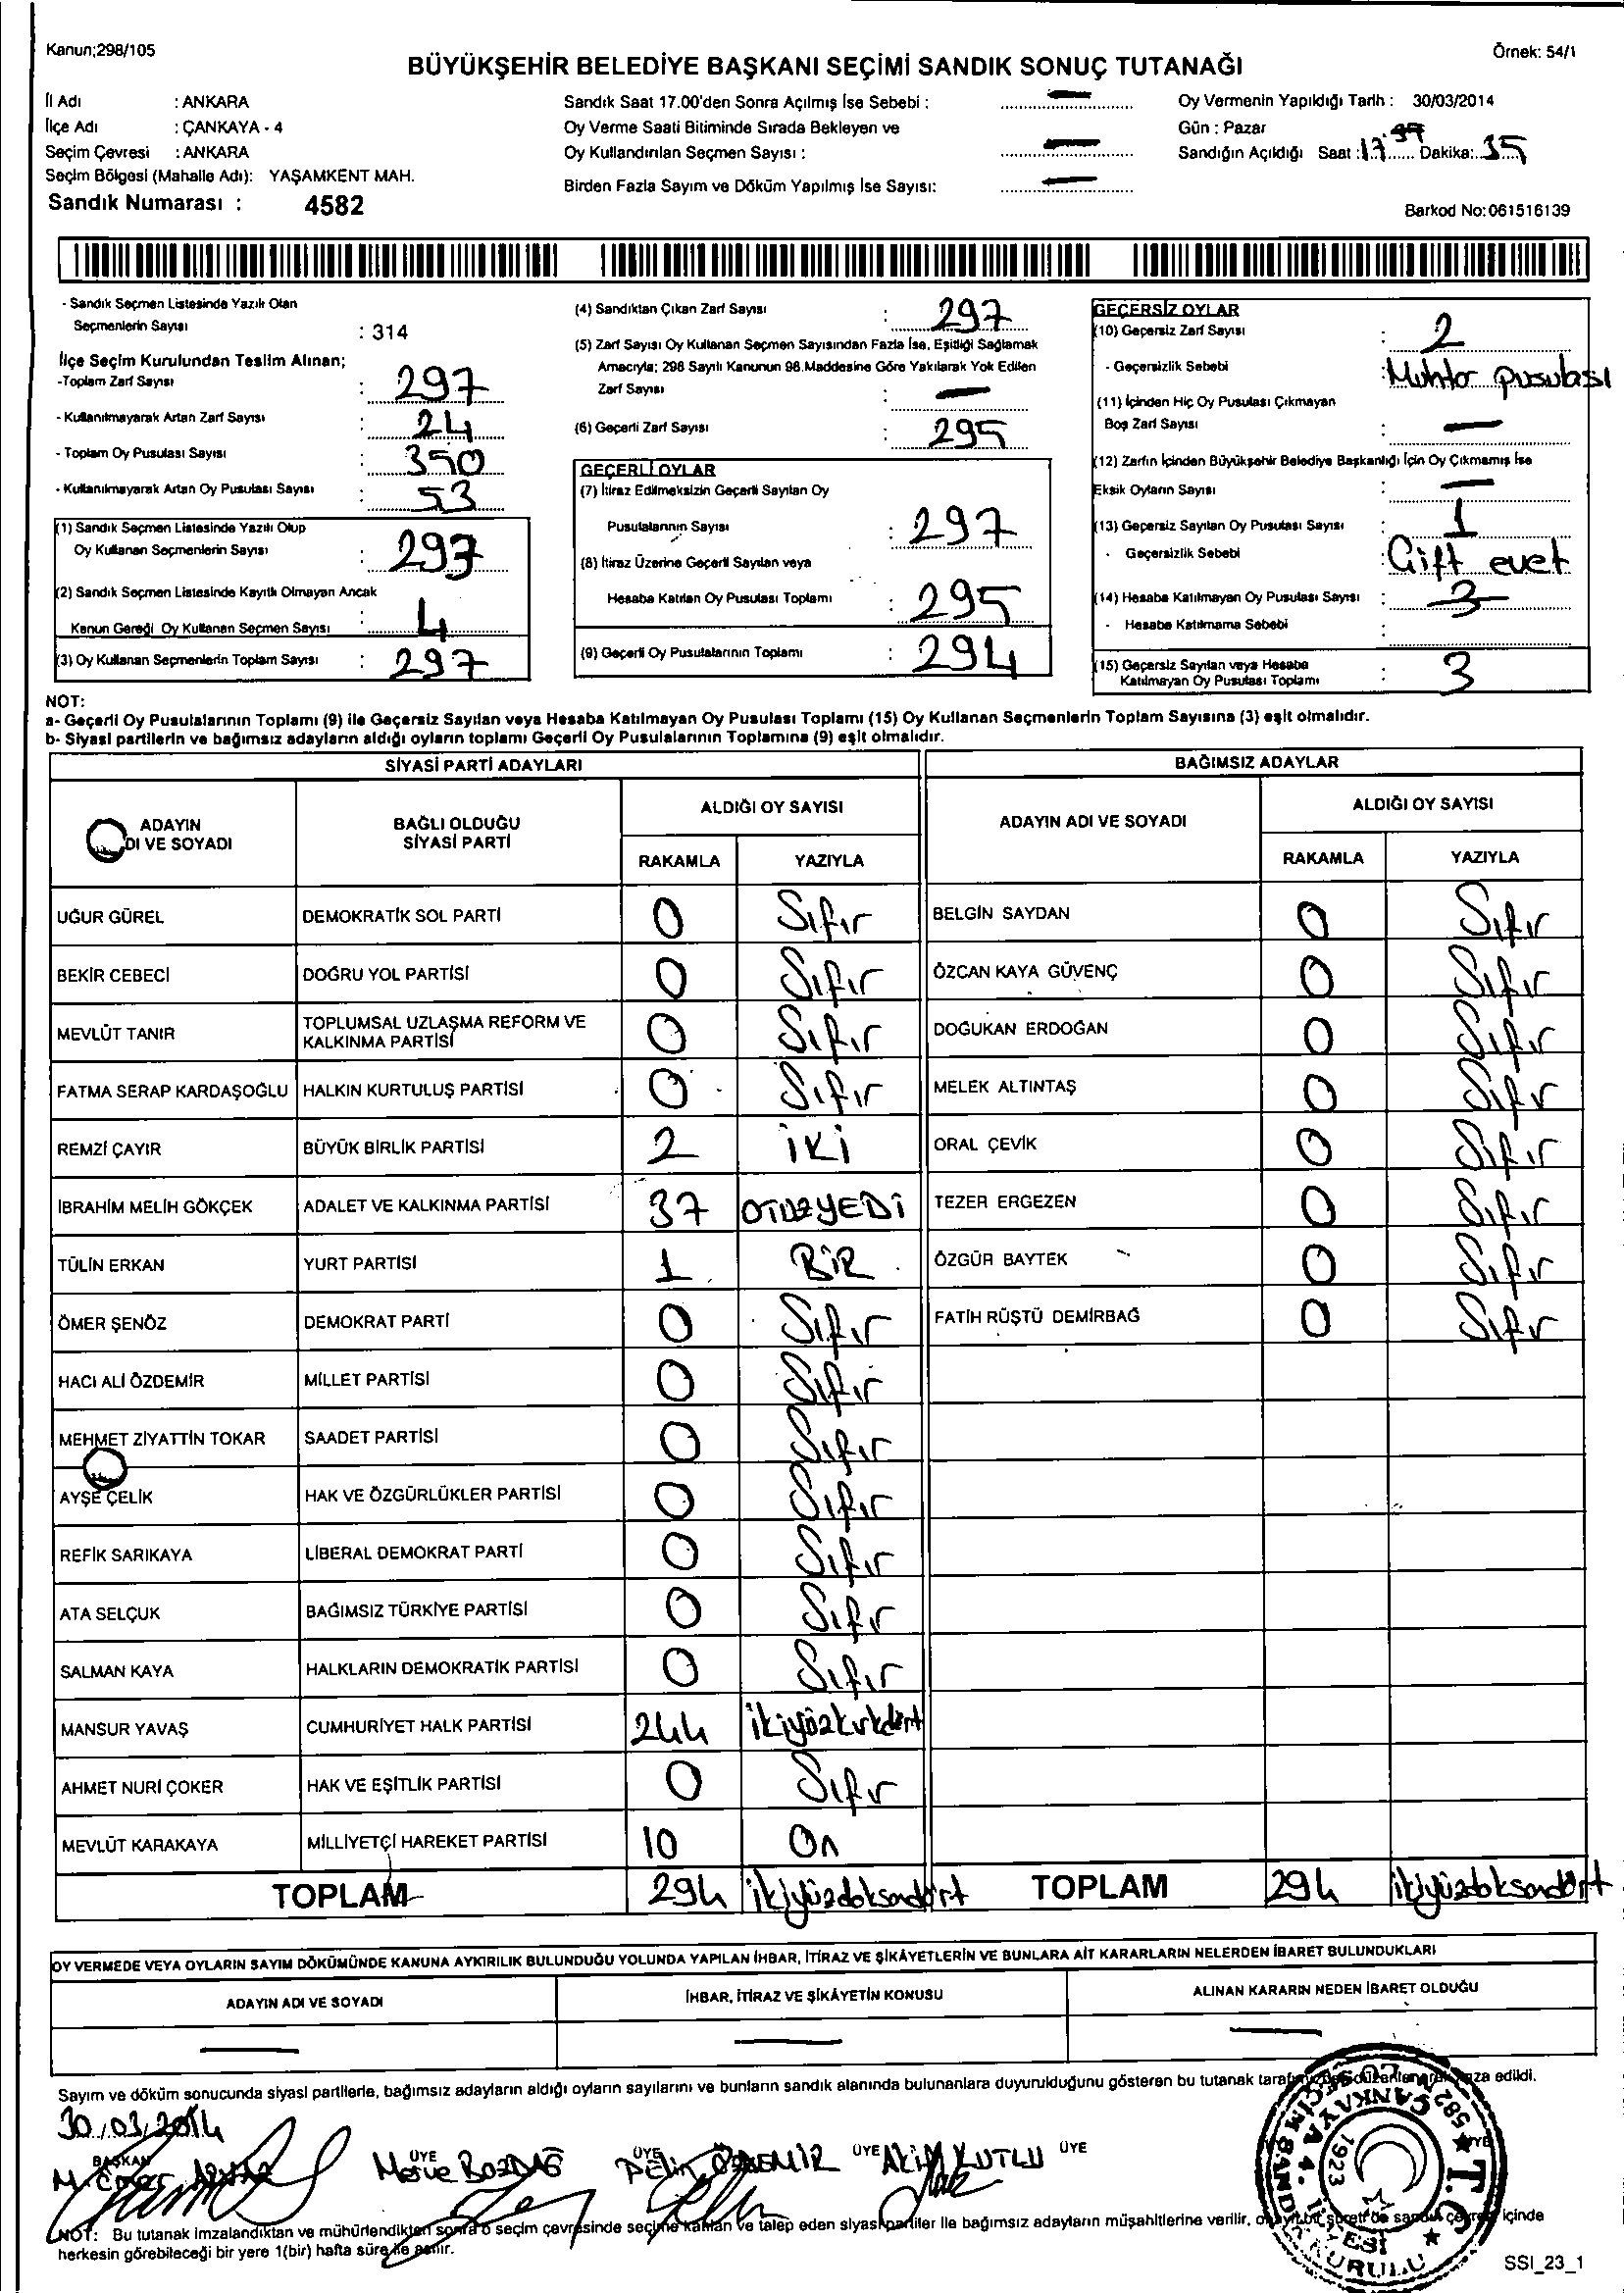 Kanun;298/105
Örnek: 54/1
BÜYÜKŞEHİR BELEDİYE BAŞKANI SEÇİMİ SANDIK SONUÇ TUTANAĞI
İl Adı : ANKARA
İlçe Adı : ÇANKAYA - 4
Seçim Çevresi : ANKARA
Seçim Bölgesi (Mahalle Adı): YAŞAMKENT MAH.
Sandık Numarası : 4582
Sandık Saat 17.00'den Sonra Açılmış İse Sebebi :
Oy Verme Saati Bitiminde Sırada Bekleyen ve
Oy Kullandırılan Seçmen Sayısı :
Birden Fazla Sayım ve Döküm Yapılmış İse Sayısı:
Oy Vermenin Yapıldığı Tarih : 30/03/2014
Gün : Pazar
Sandığın Açıldığı Saat : 17 Dakika: 35
Barkod No:061516139
- Sandık Seçmen Listesinde Yazılı Olan
Seçmenlerin Sayısı : 314
İlçe Seçim Kurulundan Teslim Alınan;
-Toplam Zarf Sayısı : 297
- Kullanılmayarak Artan Zarf Sayısı : 24
- Toplam Oy Pusulası Sayısı : 350
- Kullanılmayarak Artan Oy Pusulası Sayısı : 53
(1) Sandık Seçmen Listesinde Yazılı Olup
Oy Kullanan Seçmenlerin Sayısı : 293
(2) Sandık Seçmen Listesinde Kayıtlı Olmayan Ancak
Kanun Gereği Oy Kullanan Seçmen Sayısı : 4
(3) Oy Kullanan Seçmenlerin Toplam Sayısı : 297
(4) Sandıktan Çıkan Zarf Sayısı : 297
(5) Zarf Sayısı Oy Kullanan Seçmen Sayısından Fazla İse, Eşitliği Sağlamak
Amacıyla; 298 Sayılı Kanunun 98.Maddesine Göre Yakılarak Yok Edilen
Zarf Sayısı :
(6) Geçerli Zarf Sayısı : 295
GEÇERLİ OYLAR
(7) İtiraz Edilmeksizin Geçerli Sayılan Oy
Pusulalarının Sayısı : 297
(8) İtiraz Üzerine Geçerli Sayılan veya
Hesaba Katılan Oy Pusulası Toplamı : 295
(9) Geçerli Oy Pusulalarının Toplamı : 294
GEÇERSİZ OYLAR
(10) Geçersiz Zarf Sayısı : 2
- Geçersizlik Sebebi : Muhtar pusulası
(11) İçinden Hiç Oy Pusulası Çıkmayan
Boş Zarf Sayısı :
(12) Zarfın İçinden Büyükşehir Belediye Başkanlığı İçin Oy Çıkmamış İse
Eksik Oyların Sayısı :
(13) Geçersiz Sayılan Oy Pusulası Sayısı : 1
- Geçersizlik Sebebi : Çift evet
(14) Hesaba Katılmayan Oy Pusulası Sayısı : 3
- Hesaba Katılmama Sebebi :
(15) Geçersiz Sayılan veya Hesaba
Katılmayan Oy Pusulası Toplamı : 3
NOT:
a- Geçerli Oy Pusulalarının Toplamı (9) ile Geçersiz Sayılan veya Hesaba Katılmayan Oy Pusulası Toplamı (15) Oy Kullanan Seçmenlerin Toplam Sayısına (3) eşit olmalıdır.
b- Siyasi partilerin ve bağımsız adayların aldığı oyların toplamı Geçerli Oy Pusulalarının Toplamına (9) eşit olmalıdır.
SİYASİ PARTİ ADAYLARI BAĞIMSIZ ADAYLAR
ADAYIN
DI VE SOYADI
BAĞLI OLDUĞU
SİYASİ PARTİ
ALDIĞI OY SAYISI
RAKAMLA YAZIYLA
ADAYIN ADI VE SOYADI
ALDIĞI OY SAYISI
RAKAMLA YAZIYLA
UĞUR GÜREL DEMOKRATİK SOL PARTİ 0 Sıfır BELGİN SAYDAN 0 Sıfır
BEKİR CEBECİ DOĞRU YOL PARTİSİ 0 Sıfır ÖZCAN KAYA GÜVENÇ 0 Sıfır
MEVLÜT TANIR TOPLUMSAL UZLAŞMA REFORM VE
KALKINMA PARTİSİ 0 Sıfır DOĞUKAN ERDOĞAN 0 Sıfır
FATMA SERAP KARDAŞOĞLU HALKIN KURTULUŞ PARTİSİ 0 Sıfır MELEK ALTINTAŞ 0 Sıfır
REMZİ ÇAYIR BÜYÜK BİRLİK PARTİSİ 2 iKi ORAL ÇEVİK 0 Sıfır
İBRAHİM MELİH GÖKÇEK ADALET VE KALKINMA PARTİSİ 37 OTUZYEDİ TEZER ERGEZEN 0 Sıfır
TÜLİN ERKAN YURT PARTİSİ 1 BİR ÖZGÜR BAYTEK 0 Sıfır
ÖMER ŞENÖZ DEMOKRAT PARTİ 0 Sıfır FATİH RÜŞTÜ DEMİRBAĞ 0 Sıfır
HACI ALİ ÖZDEMİR MİLLET PARTİSİ 0 Sıfır
MEHMET ZİYATTİN TOKAR SAADET PARTİSİ 0 Sıfır
AYŞE ÇELİK HAK VE ÖZGÜRLÜKLER PARTİSİ 0 Sıfır
REFİK SARIKAYA LİBERAL DEMOKRAT PARTİ 0 Sıfır
ATA SELÇUK BAĞIMSIZ TÜRKİYE PARTİSİ 0 Sıfır
SALMAN KAYA HALKLARIN DEMOKRATİK PARTİSİ 0 Sıfır
MANSUR YAVAŞ CUMHURİYET HALK PARTİSİ 244 ikiyüzkırkdört
AHMET NURİ ÇOKER HAK VE EŞİTLİK PARTİSİ 0 Sıfır
MEVLÜT KARAKAYA MİLLİYETÇİ HAREKET PARTİSİ 10 On
TOPLAM 294 ikiyüzdoksandört TOPLAM 294 ikiyüzdoksandört
OY VERMEDE VEYA OYLARIN SAYIM DÖKÜMÜNDE KANUNA AYKIRILIK BULUNDUĞU YOLUNDA YAPILAN İHBAR, İTİRAZ VE ŞİKÂYETLERİN VE BUNLARA AİT KARARLARIN NELERDEN İBARET BULUNDUKLARI
ADAYIN ADI VE SOYADI İHBAR, İTİRAZ VE ŞİKÂYETİN KONUSU ALINAN KARARIN NEDEN İBARET OLDUĞU
Sayım ve döküm sonucunda siyasi partilerle, bağımsız adayların aldığı oyların sayılarını ve bunların sandık alanında bulunanlara duyurulduğunu gösteren bu tutanak edildi.
30/03/2014
BAŞKAN ÜYE ÜYE ÜYE ÜYE
Merve BOZDAĞ PELİN ÖZDEMİR KUTLU
NOT: Bu tutanak imzalandıktan ve mühürlendikten sonra o seçim çevresinde seçime katılan ve talep eden siyasi partiler ile bağımsız adayların müşahitlerine verilir, içinde
herkesin görebileceği bir yere 1(bir) hafta süre ile asılır.
T.C. ÇANKAYA 4. 1923
SSI_23_1